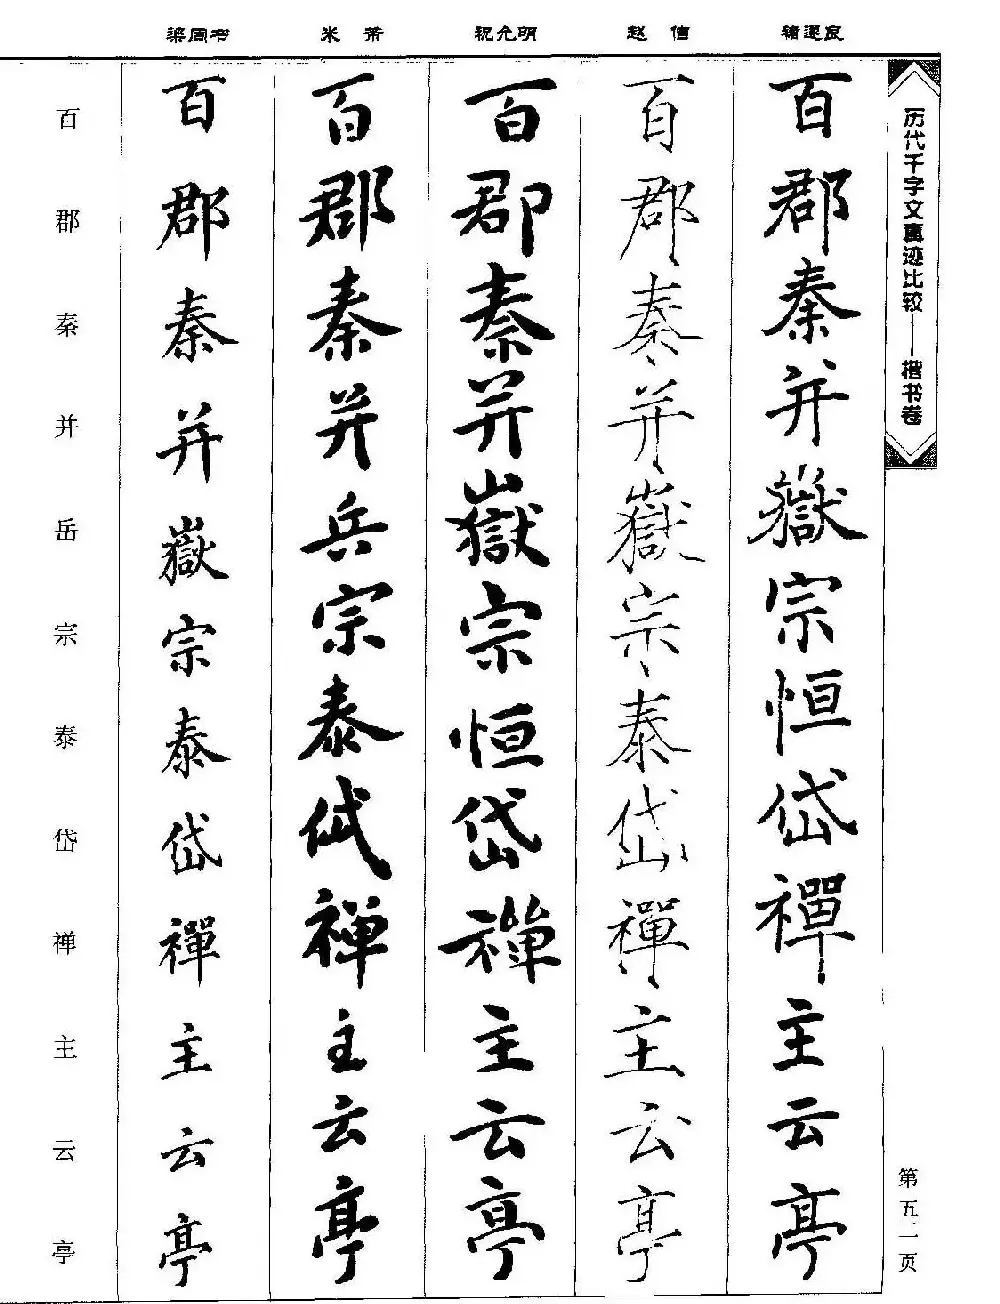 历代千字文真迹比较——楷书卷
第五二页
褚遂良
百郡秦并嶽宗恒岱禪主云亭
赵佶
百郡秦并嶽宗泰岱禪主云亭
祝允明
百郡秦并嶽宗恒岱禪主云亭
米芾
百郡秦并岳宗泰岱禅主云亭
梁同书
百郡秦并嶽宗泰岱禪主云亭
百郡秦并岳宗泰岱禅主云亭